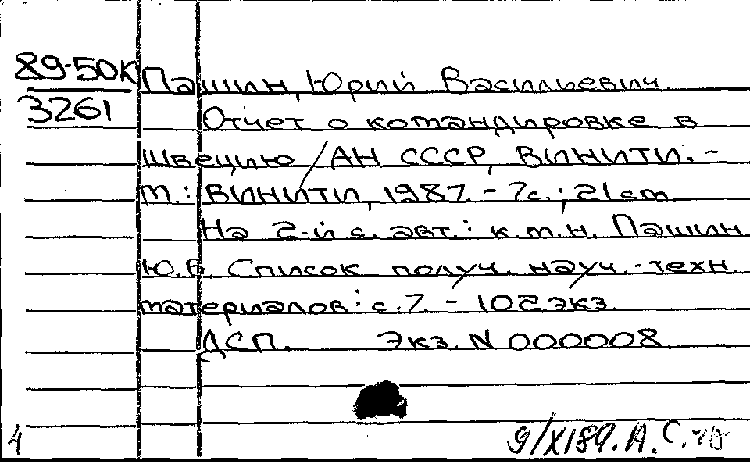 89-50К Пашин, Юрий Васильевич.
3261 Отчет о командировке в
Швецию / АН СССР, ВИНИТИ. -
М.: ВИНИТИ, 1987. - 7с.; 21 см
На 2-й с. авт.: к.т.н. Пашин
Ю.В. Список получ. науч.-техн.
материалов: с.7. - 102 экз.
ДСП. Экз. N 000008
4 9/XI89. А.С.